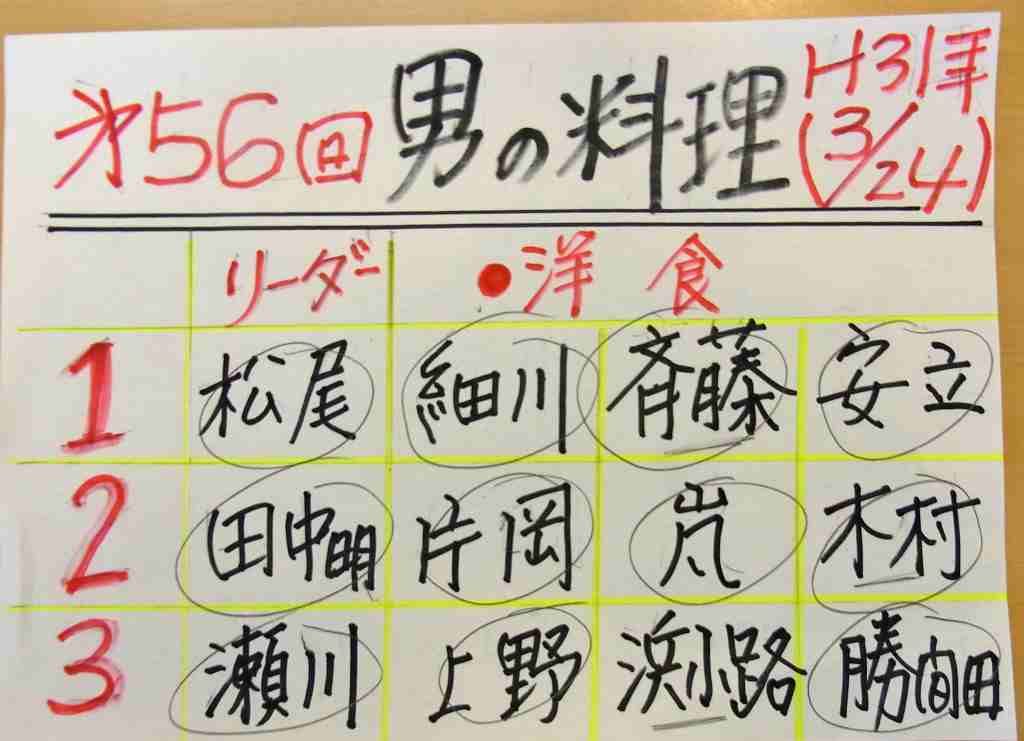 第56回 男の料理 H31年
(3/24)
リーダー ●洋食
1 松尾 細川 斉藤 安立
2 田中明 片岡 嵐 木村
3 瀬川 上野 浜小路 勝間田